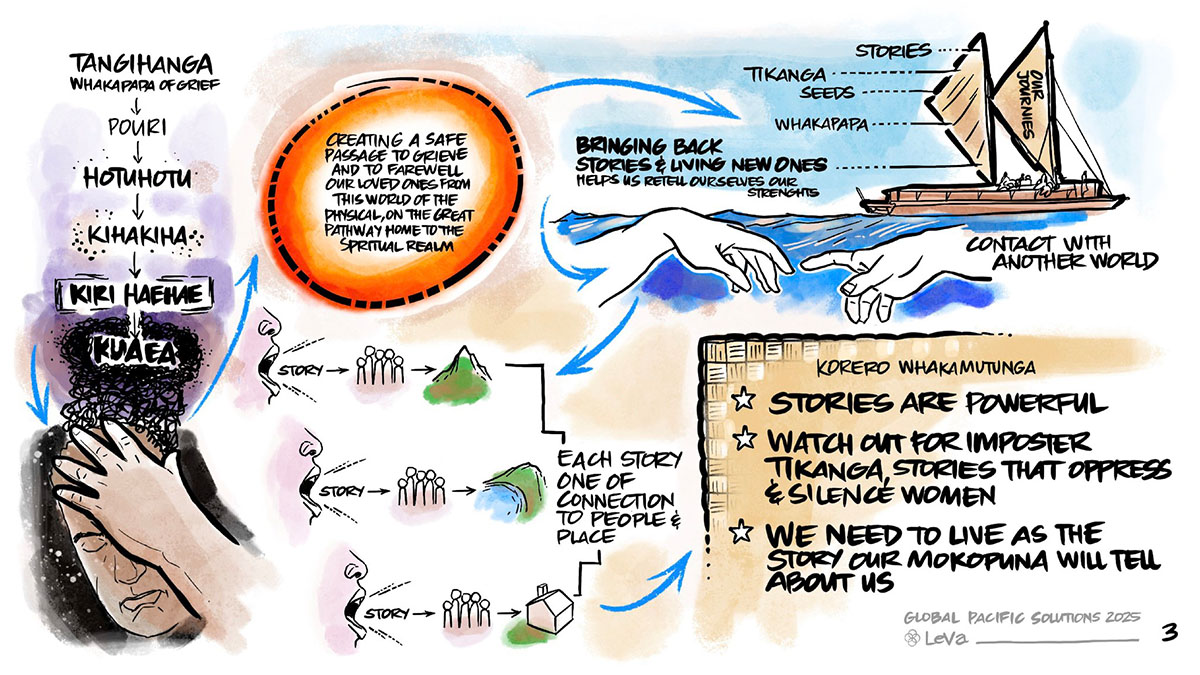 TANGIHANGA
WHAKAPAPA OF GRIEF
POURI
HOTUHOTU
KIHAKIHA
KIRI HAEHAE
KUAEA
CREATING A SAFE
PASSAGE TO GRIEVE
AND TO FAREWELL
OUR LOVED ONES FROM
THIS WORLD OF THE
PHYSICAL, ON THE GREAT
PATHWAY HOME TO THE
SPRITUAL REALM
STORIES
TIKANGA
SEEDS
WHAKAPAPA
OUR
JOURNIES
BRINGING BACK
STORIES & LIVING NEW ONES
HELPS US RETELL OURSELVES OUR
STRENGHTS
CONTACT WITH
ANOTHER WORLD
STORY
STORY
STORY
EACH STORY
ONE OF
CONNECTION
TO PEOPLE &
PLACE
KORERO WHAKAMUTUNGA
STORIES ARE POWERFUL
WATCH OUT FOR IMPOSTER
TIKANGA, STORIES THAT OPPRESS
& SILENCE WOMEN
WE NEED TO LIVE AS THE
STORY OUR MOKOPUNA WILL TELL
ABOUT US
GLOBAL PACIFIC SOLUTIONS 2025
LeVa
3